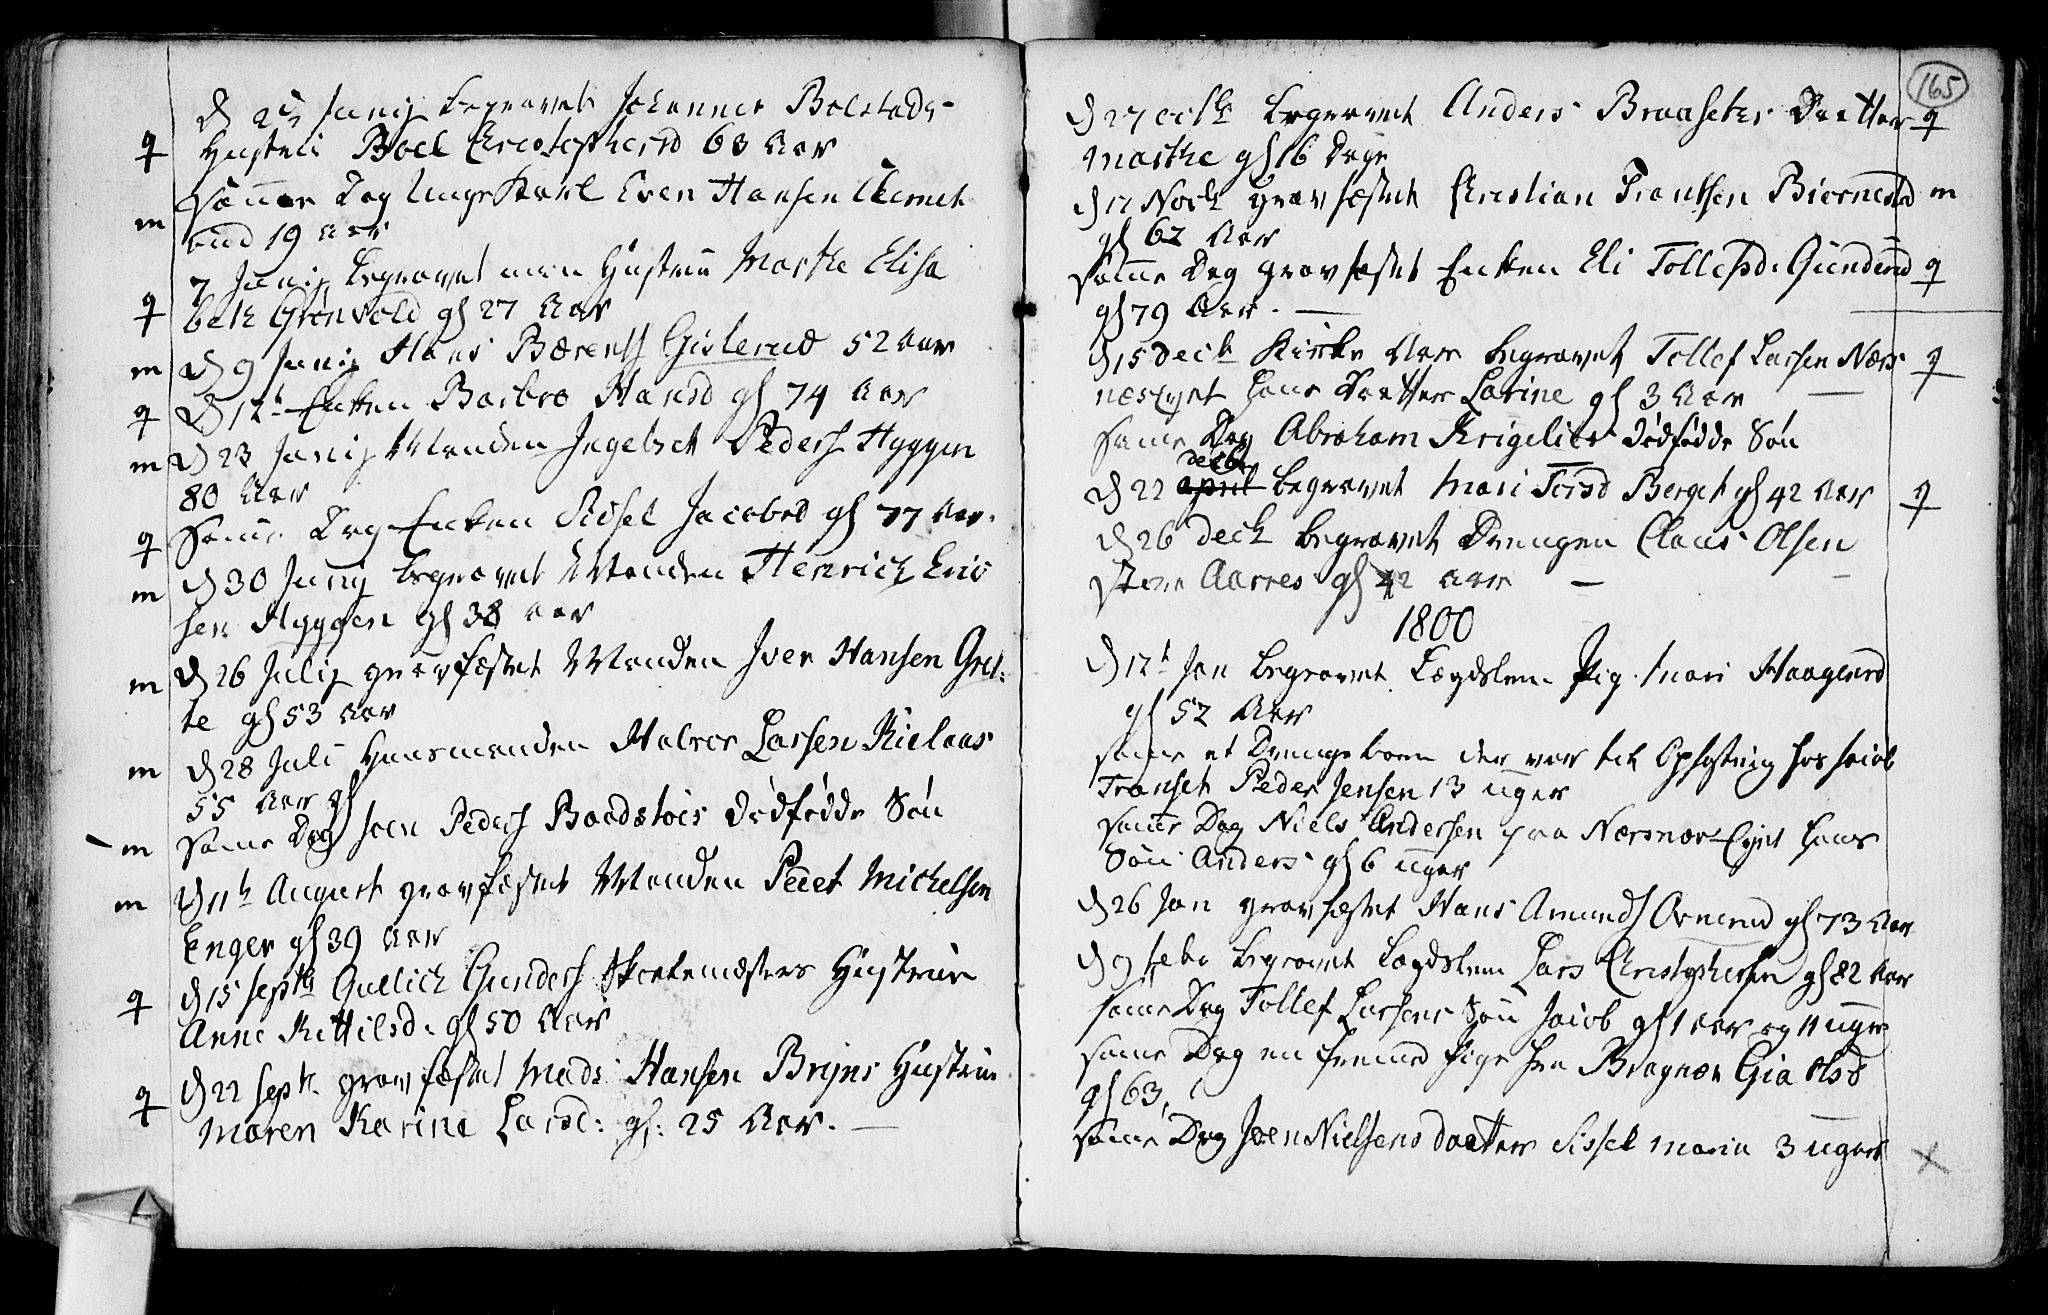 q D 25 Junij begravet Johannes Bolstads
Hustrue Boel Christophersd 63 Aar
m Samme Dag Unge Karl Even Hansen Clemet
rud 19 Aar
q 7 Junij begravet min Hustrue Marthe Elisa
beth Grønvold gl 27 Aar
m D 9 Junij Hans Bærents Gislerud 52 Aar
q D 12t Enken Barbro Hansd gl 74 Aar
m D 23 Junij Manden Ingebret Peders Hyggen
80 Aar
q Samme Dag Enken Sidsel Jacobsd gl 77 Aar
m D 30 Junij begravet Manden Henrich Eric
sen Hyggen gl 38 Aar
m D 26 Julij gravfæstet Manden Iver Hansen Gret:
te gl 53 Aar
m D 28 Juli Huusmanden Halvor Larsen Kielaas
55 Aar gl
m Samme Dag Joen Peders Baadstøes Dødfødde Søn
m D 11t August gravfæstet Manden Peter Michelsen
Enger gl 39 Aar
q D 15 septb Gullich Gunders Skolemesters Hustrue
Anne Kittilsd. gl 50 Aar
q D 22 septb. gravfæstet Mads Hansen Bryns Hustrue
Maren Karine Larsd: gl: 25 Aar.
165
D 27 octb begravet Anders Braaseters Daatter q
Marthe gl 16 Dage
D 12 Novb gravfæstet Christian Frantsen Biernestd m
gl 62 Aar
Samme Dag gravfæstet Enken Eli Tollefsd. Gunderud q
gl 79 Aar.
D 15 Decb Kirke Aar begravet Tollef Larsen Nærs q
næsejet hans Daatter Larine gl 3 Aar
Samme Dag Abraham Krigelies dødfødde Søn
decb
D 22 april begravet Mari Torsd Berget gl 42 Aar q
D 26 Decb begravet Drengen Claus Olsen
Store Aarres gl 42 Aar
1800
D 12t Jan begravet Lægdslem Pig. Mari Haagensd
gl 52 Aar
samme et Drengebarn der var till Opfostring hos Jacob
Transet Peder Jensen 13 uger
samme Dag Niels Andersen paa Nærsnæs Ejet hans
Søn Anders gl 6 uger
D 26 Jan gravfæstet Hans Amunds Ovnerud gl 73 Aar
D 9 febr begravet Lægdslem Lars Christophersen gl 82 Aar
samme Dag Tollef Larsens Søn Jacob gl 1 Aar og 11 uger
samme Dag en fremmed Pige fra Bragnæs Gia Olsd
gl 63,
samme Dag Joen Nielsens daatter Sissel Maria 3 uger x